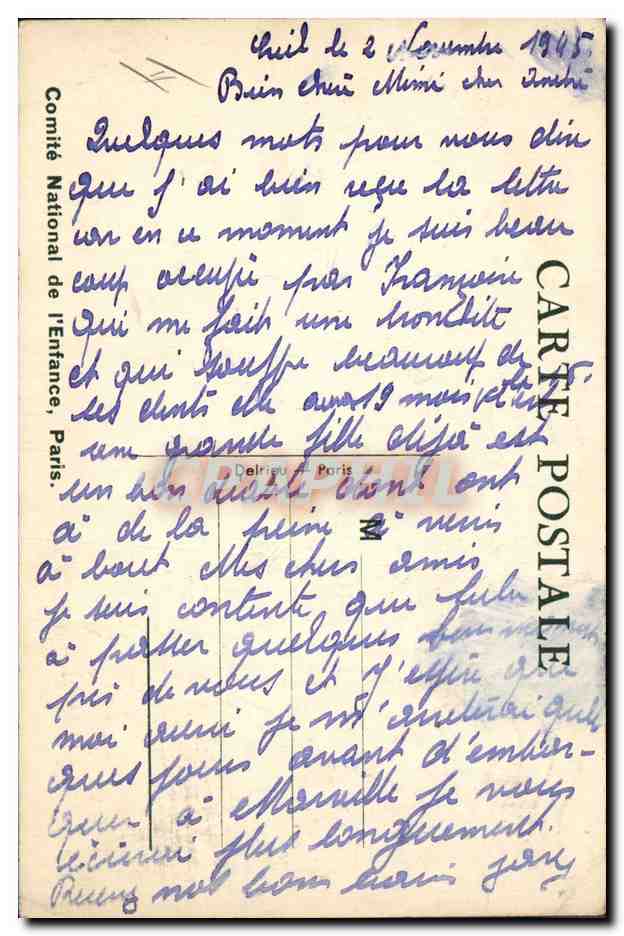 Creil le 2 Novembre 1945
Bien chère Mimi cher André
Quelques mots pour vous dire
que j'ai bien reçu la lettre
car en ce moment je suis beau
coup occupé par Françoise
qui me fait une bronchite
et qui souffre beaucoup de
ses dents de 19 mois
une grande fille déjà est
un bon diable dont ont
à de la peine à venir
à bout Mes chers amis
je suis contente que Lulu
à passer quelques bons moments
près de vous et J'espère que
moi aussi je m'arreterai quel
ques jours avant d'embar-
quer à Marseille je vous
écrirai plus longuement.
Recevez nos bons baisers
CARTE POSTALE
Comité National de l'Enfance, Paris.
Delrieu - Paris
M
CARTAPHILE